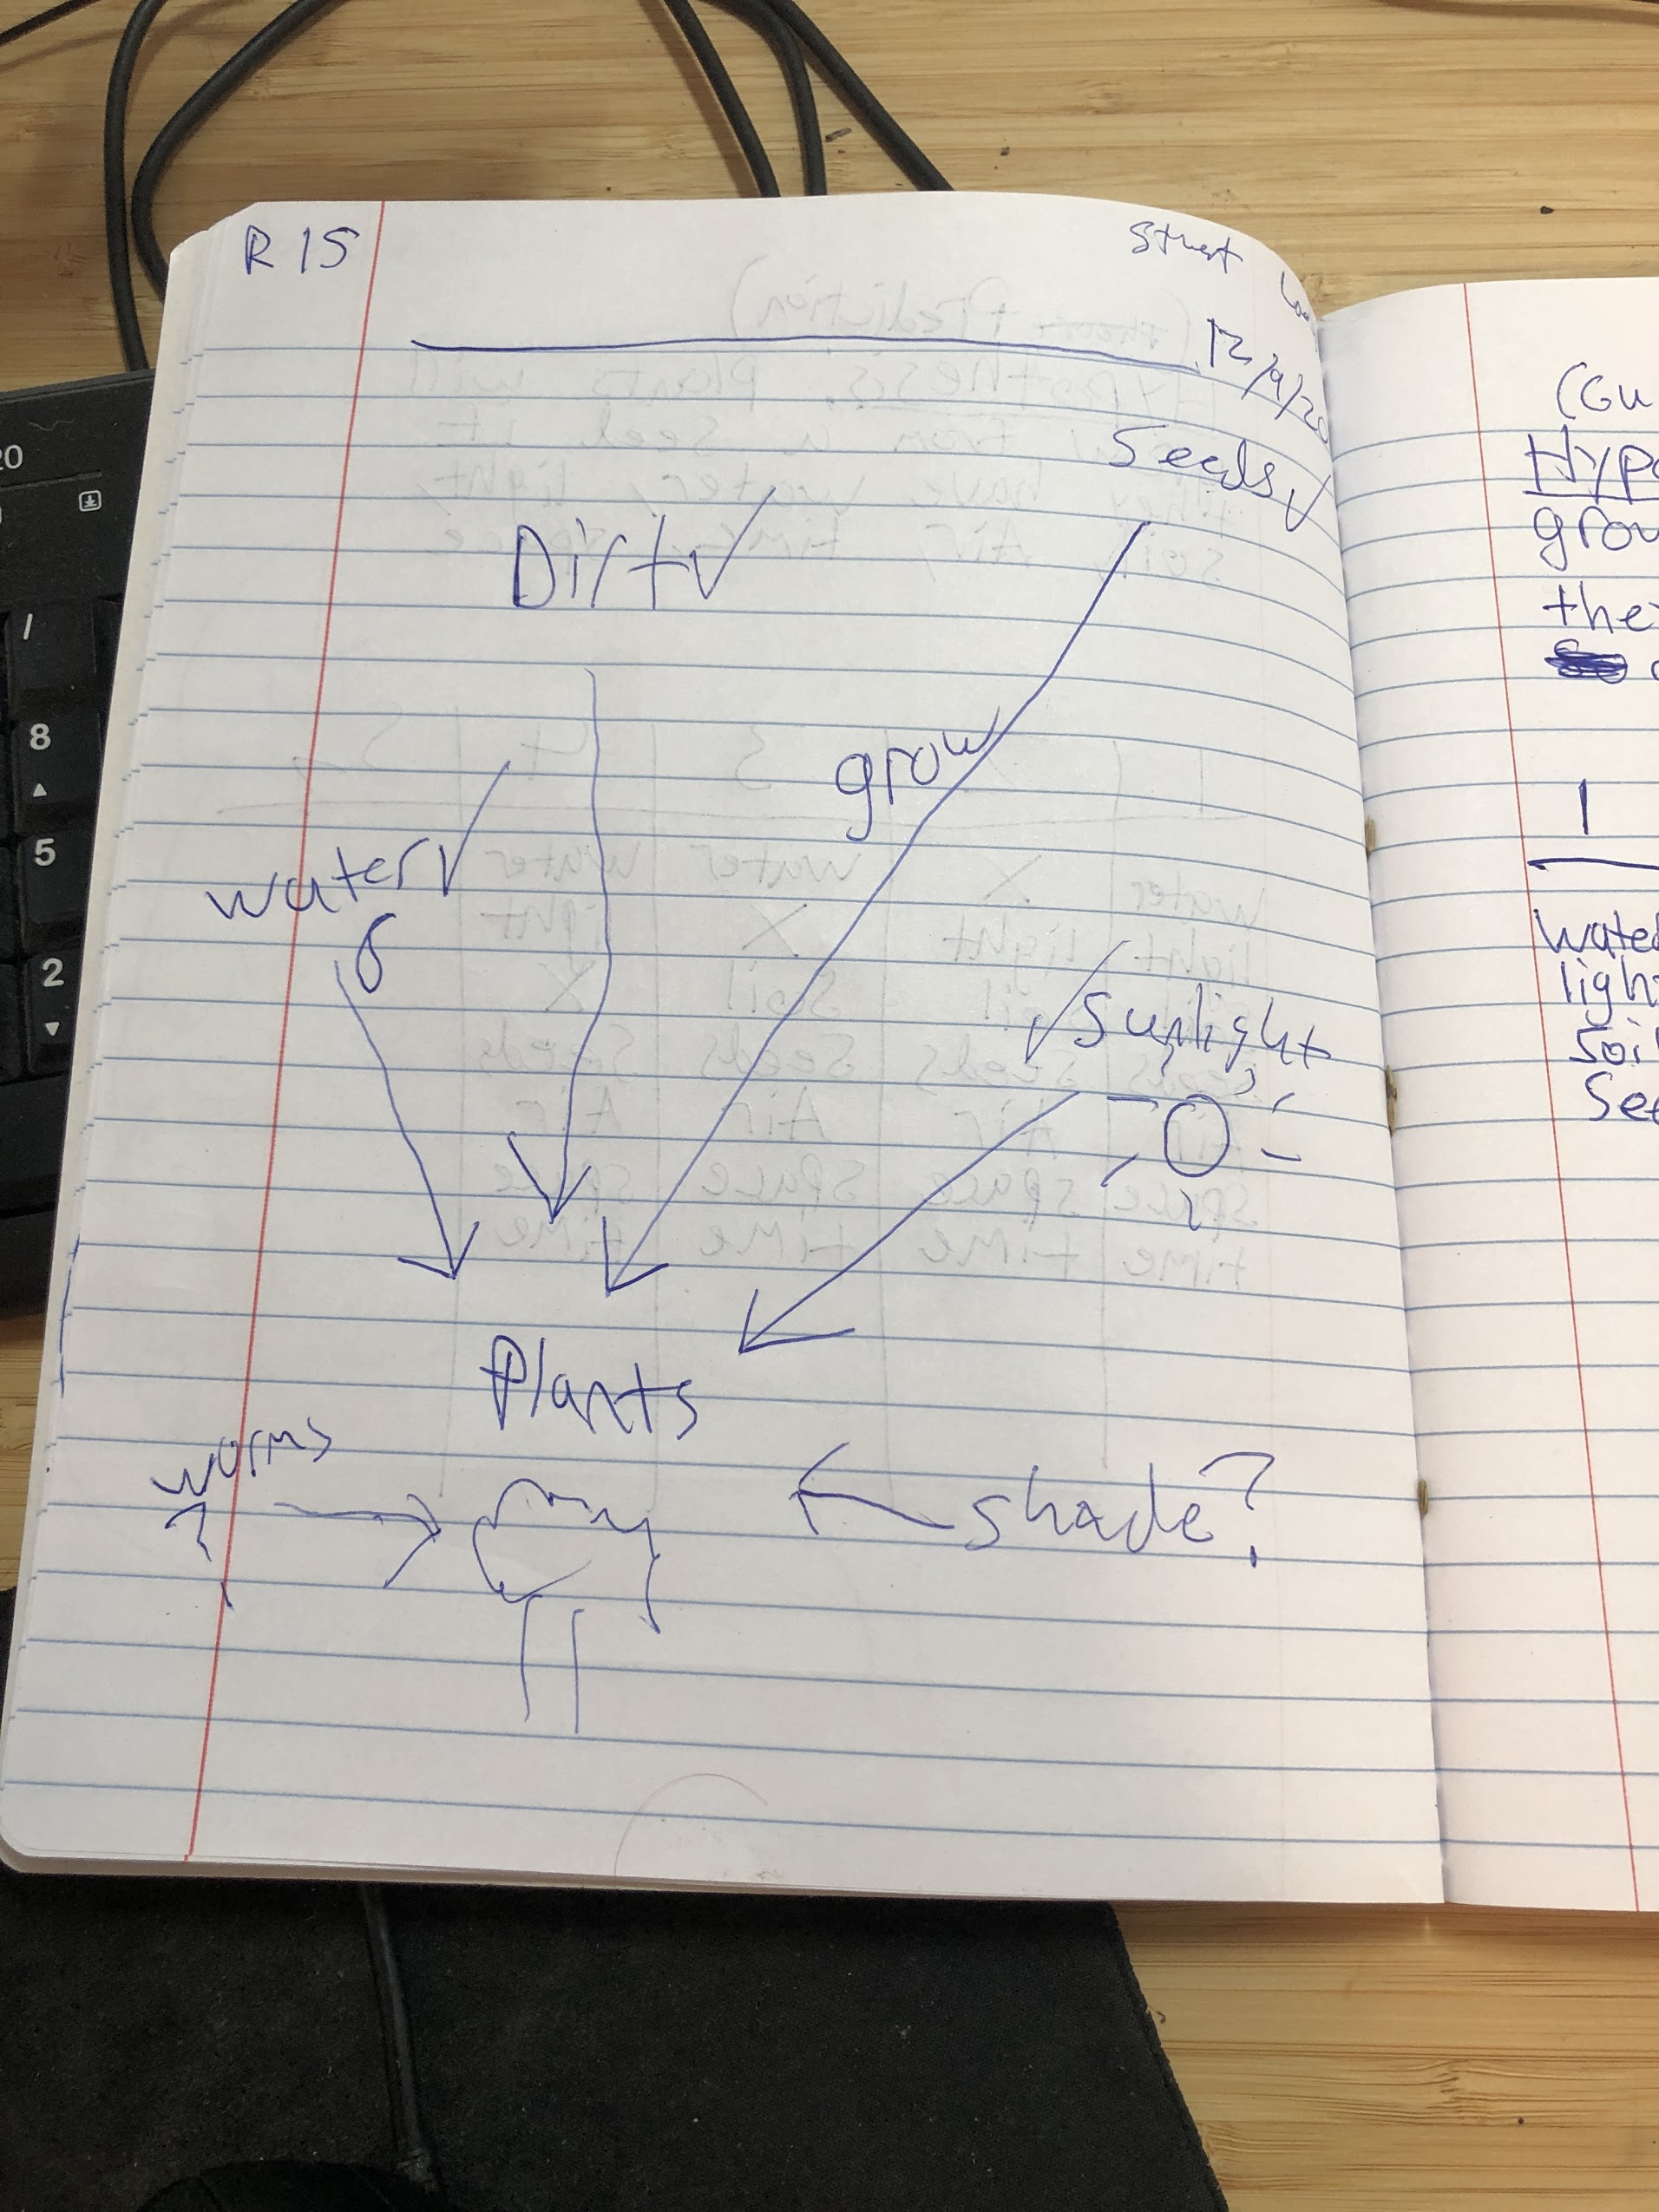 R 15
12/9/20
Seeds
Dirt
grow
water
sunlight
Plants
worms
?
shade?
(Gu
Hypo
grow
the
1
Water
light
Soil
See
20
/
8
5
2